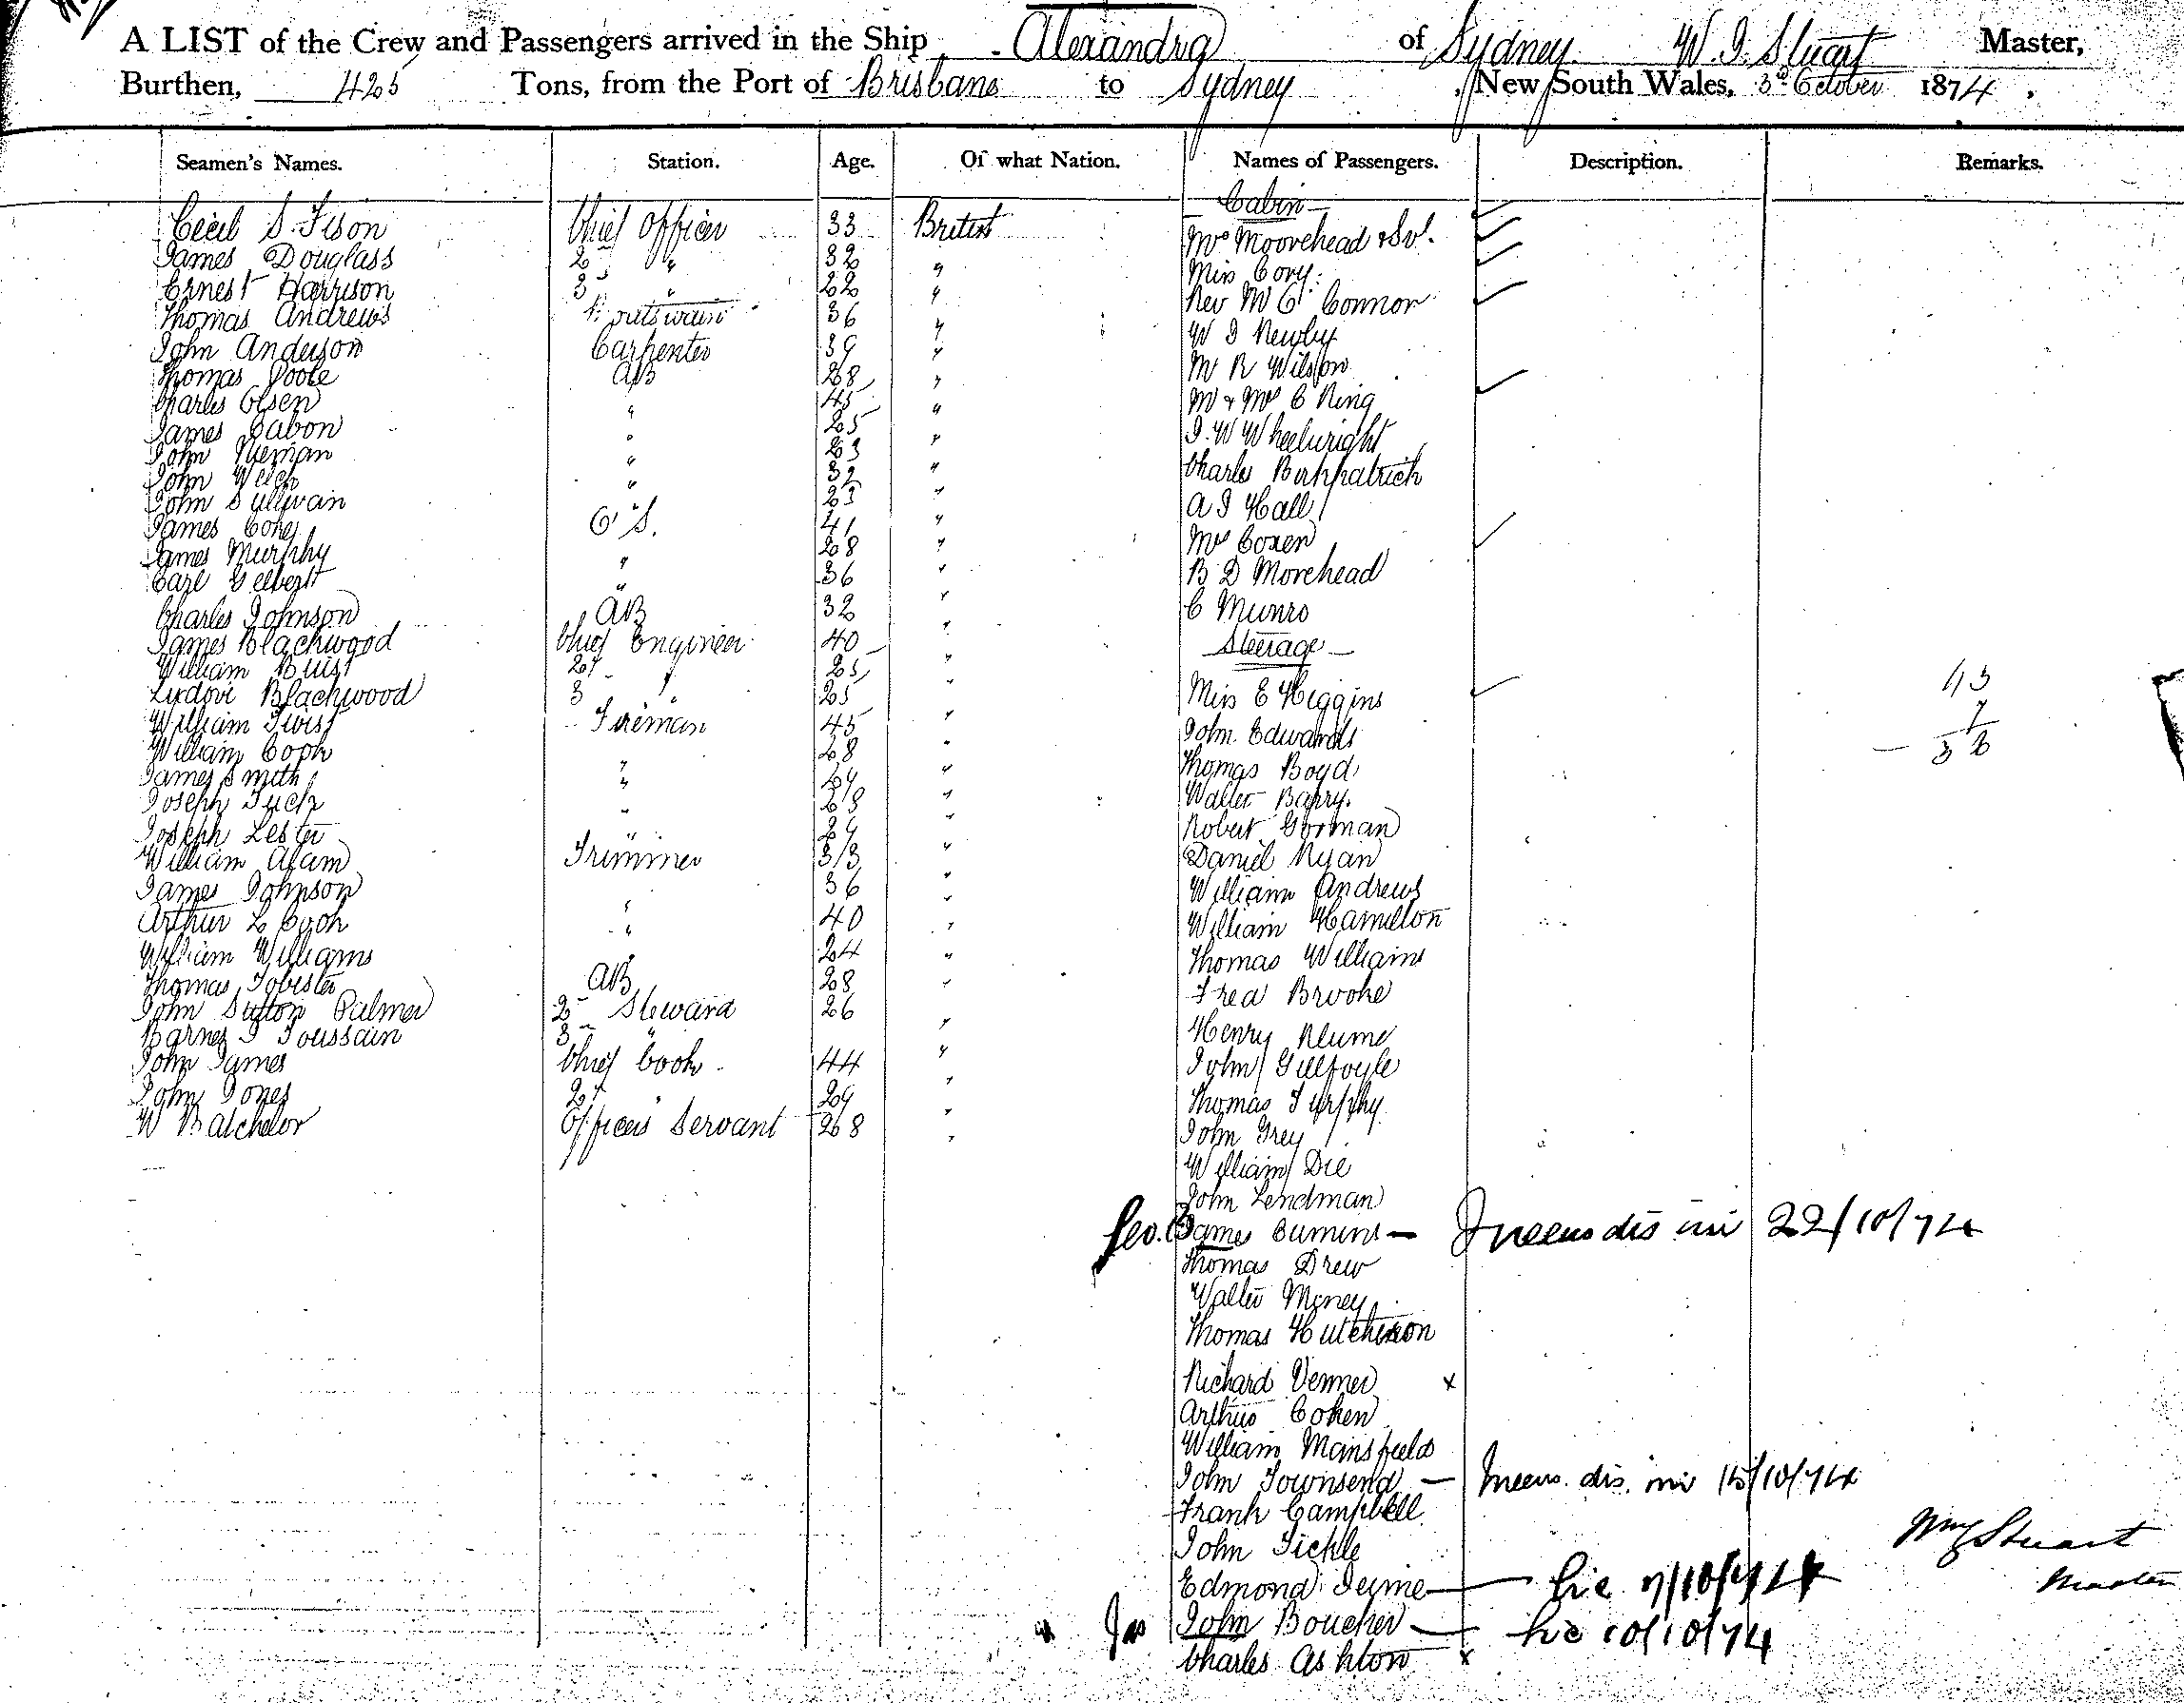 A LIST of the Crew and Passengers arrived in the Ship Alexandra of Sydney W. J. Stuart Master,
Burthen, 425 Tons, from the Port of Brisbane to Sydney, New South Wales, 3rd October 1874.
Seamen's Names. Station. Age. Of what Nation. Names of Passengers. Description. Remarks.
Cecil S. Fison Chief Officer 33 British
James Douglass 2 " 32 "
Ernest Harrison 3 " 22 "
Thomas Andrews Boatswain 36 "
John Anderson Carpenter 39 "
Thomas Poole AB 28 "
Charles Olsen " 45 "
James Cabon " 25 "
John Neman " 23 "
John Welch " 32 "
John Sullivan " 23 "
James O.S. 41 "
James Murphy " 28 "
Carl Gelbert " 36 "
Charles Johnson AB 32 "
James Blackwood Chief Engineer 40 "
William Buist 2d " 25 "
Ludovi Blackwood 3 " 25 "
William Twist Fireman 45 "
William Cook " 28 "
James Smith " 29 "
Joseph " 28 "
Joseph Lester " 29 "
William Adam Trimmer 33 "
James Johnson " 36 "
Arthur L Cook " 40 "
William Williams " 24 "
Thomas Tobister AB 28 "
John Sutton Palmer 2d Steward 26 "
Barnes T Toussain 3 "
John James Chief Cook 44 "
John Jones 2d " 29 "
W Batchelor Officers Servant 28 "
Cabin
Mrs Moorehead & Svt.
Miss Cory
Rev Mc O'Connor
W J Newby
M R Wilson
Mr & Mrs C King
J. W Wheelwright
Charles Birkpatrick
A J Hall
Mrs Coxen
B D Morehead
C Munro
Steerage
Miss E Higgins
John Edwards
Thomas Boyd
Walter Barry
Robert Gorman
Daniel Ryan
William Andrews
William Hamilton
Thomas Williams
Fred Brooke
Henry Blume
John Gulfoyle
Thomas Turphy
John Grey
William Die
John Lendman
Geo. B James Cumins — dis 22/10/74
Thomas Drew
Walter Money
Thomas Hutchison
Richard Venner x
Arthur Cohen
William Mansfield
John Townsend — dis. 15/10/74
Frank Campbell
John Tickle
Edmond Jeyme — 7/10/74
x Jas John Boucher — 10/10/74
Charles Ashton x
43
7
— 36
Wm J Stuart
Master